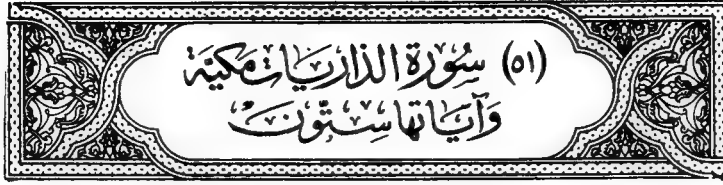 (٥١) سُورَة الذاريَات مَكيَّة
وَآيَاتها سِتُّونَ